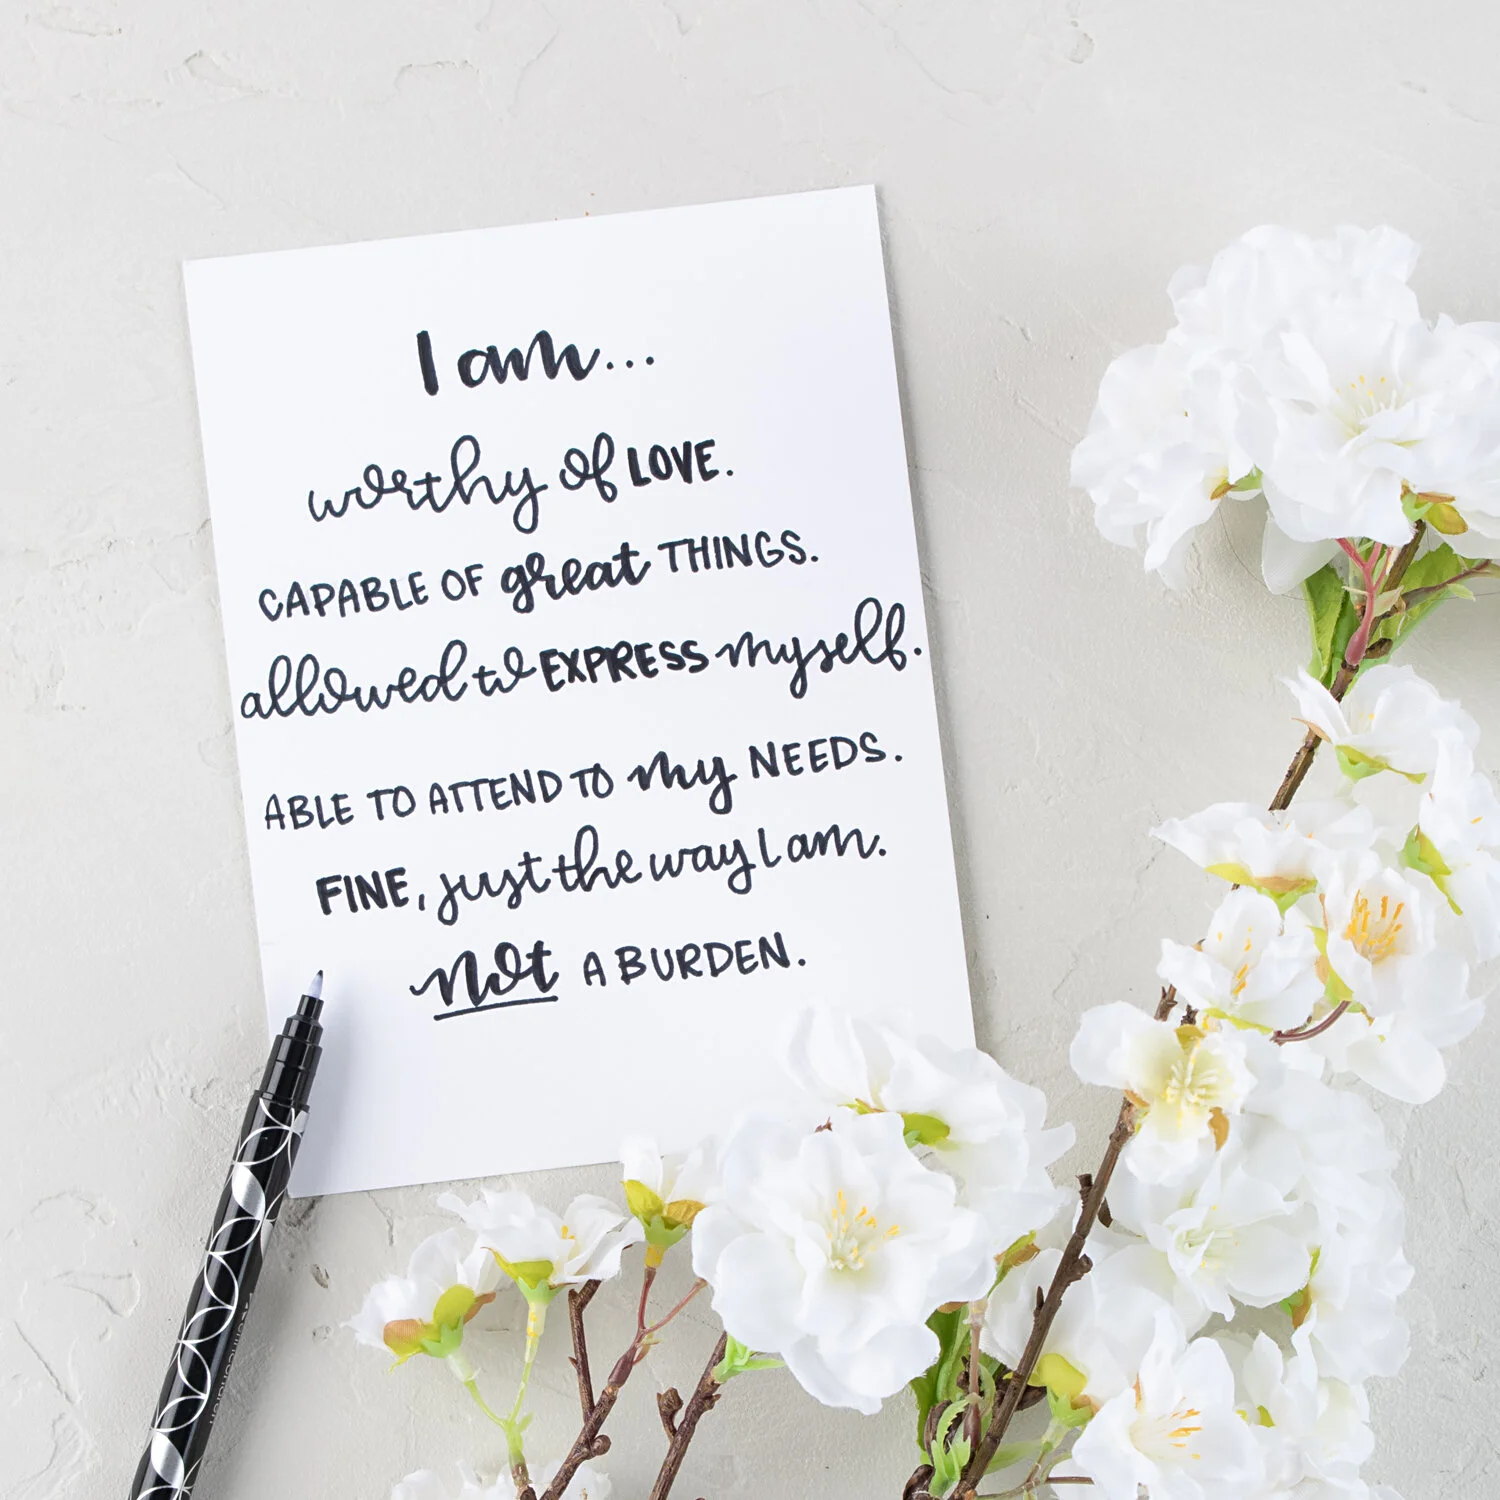 I am...
worthy of LOVE.
CAPABLE OF great THINGS.
allowed to EXPRESS myself.
ABLE TO ATTEND TO my NEEDS.
FINE, just the way I am.
not A BURDEN.